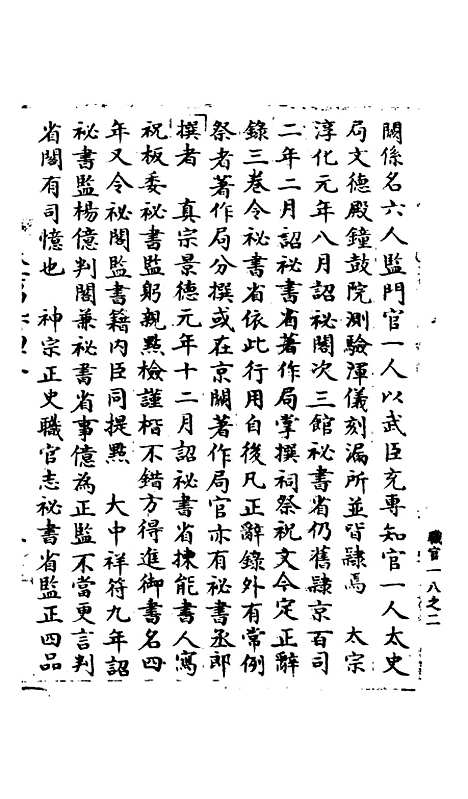 職官一八之二
闕係名六人監門官一人以武臣充專知官一人太史
局文德殿鐘鼓院測驗渾儀刻漏所並皆隸焉　太宗
淳化元年八月詔祕閣次三館祕書省仍舊隸京百司
二年二月詔祕書省著作局掌撰祠祭祝文今定正辭
錄三巻令祕書省依此行用自後凡正辭錄外有常例
祭者著作局分撰或在京闕著作局官亦有祕書丞郎
撰者　真宗景德元年十二月詔祕書省揀能書人寫
祝板委祕書監躬親㸃檢謹楷不錯方得進御書名四
年又令祕閣監書籍内臣同提㸃　大中祥符九年詔
祕書監楊億判閣兼祕書省事億為正監不當更言判
省閣有司憶也　神宗正史職官志祕書省監正四品